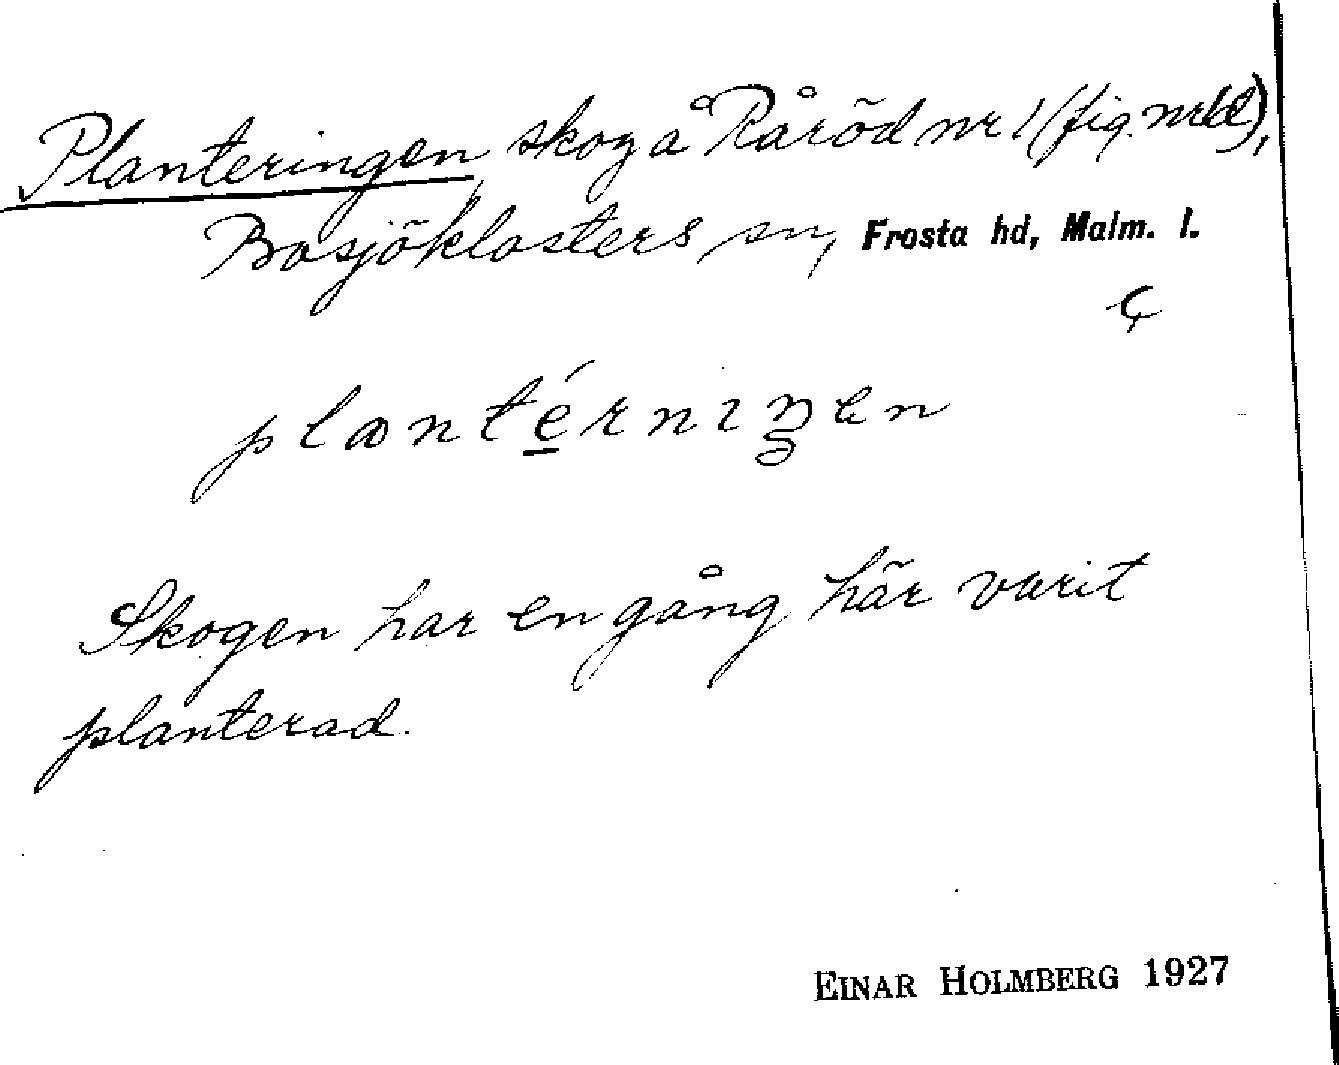 Planteringen, skog å Råröd nr 1 (fig. nr 1d),
Bosjöklosters sn, Frosta hd, Malm. l.
plantérniŋen
Skogen har en gång här varit
planterad.
EINAR HOLMBERG 1927